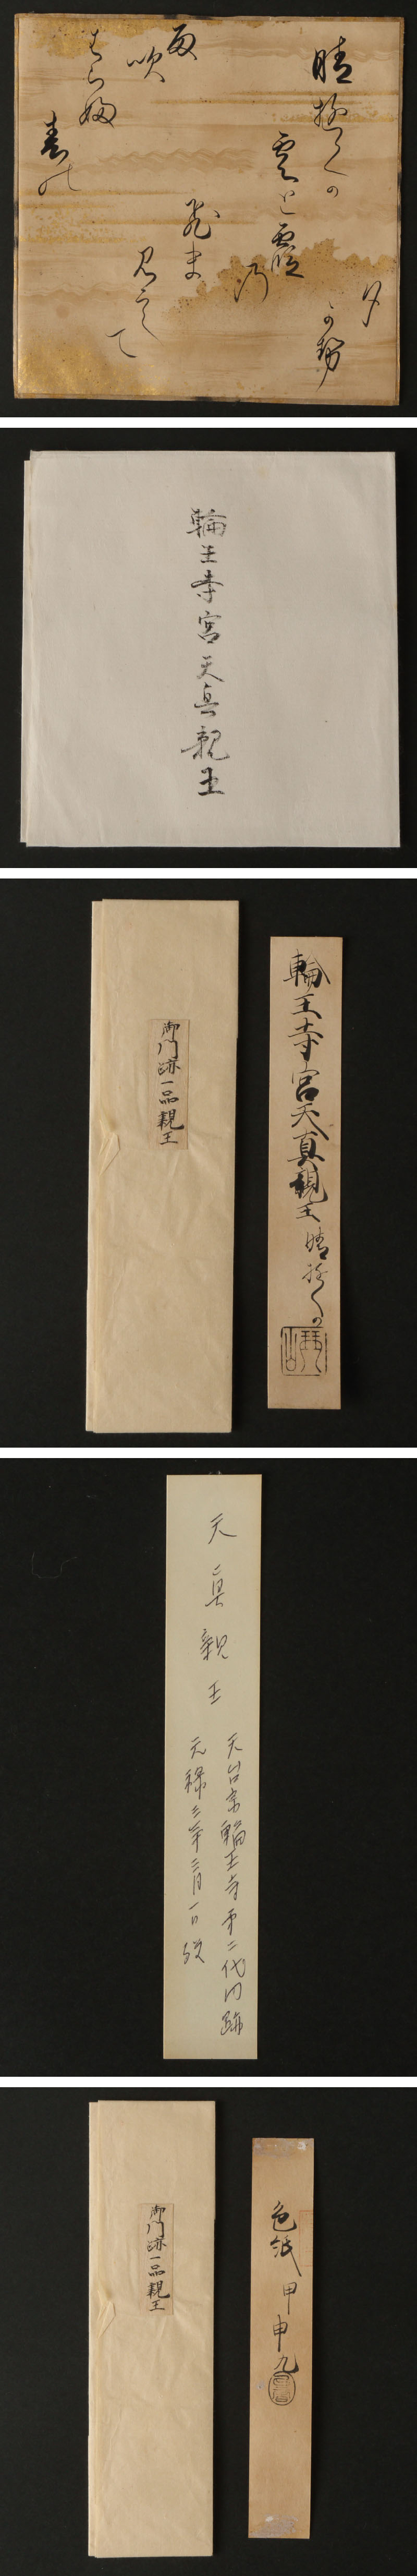 晴
雲と霞
乃
飛ま
見えて
雨
吹
者らふ
春の
夕
可勢
輪王寺宮天真親王
御門跡一品親王
輪王寺宮天真親王 晴
天真親王
天台宗輪王寺第二代門跡
元禄三年三月一日歿
御門跡一品親王
色紙 甲申九